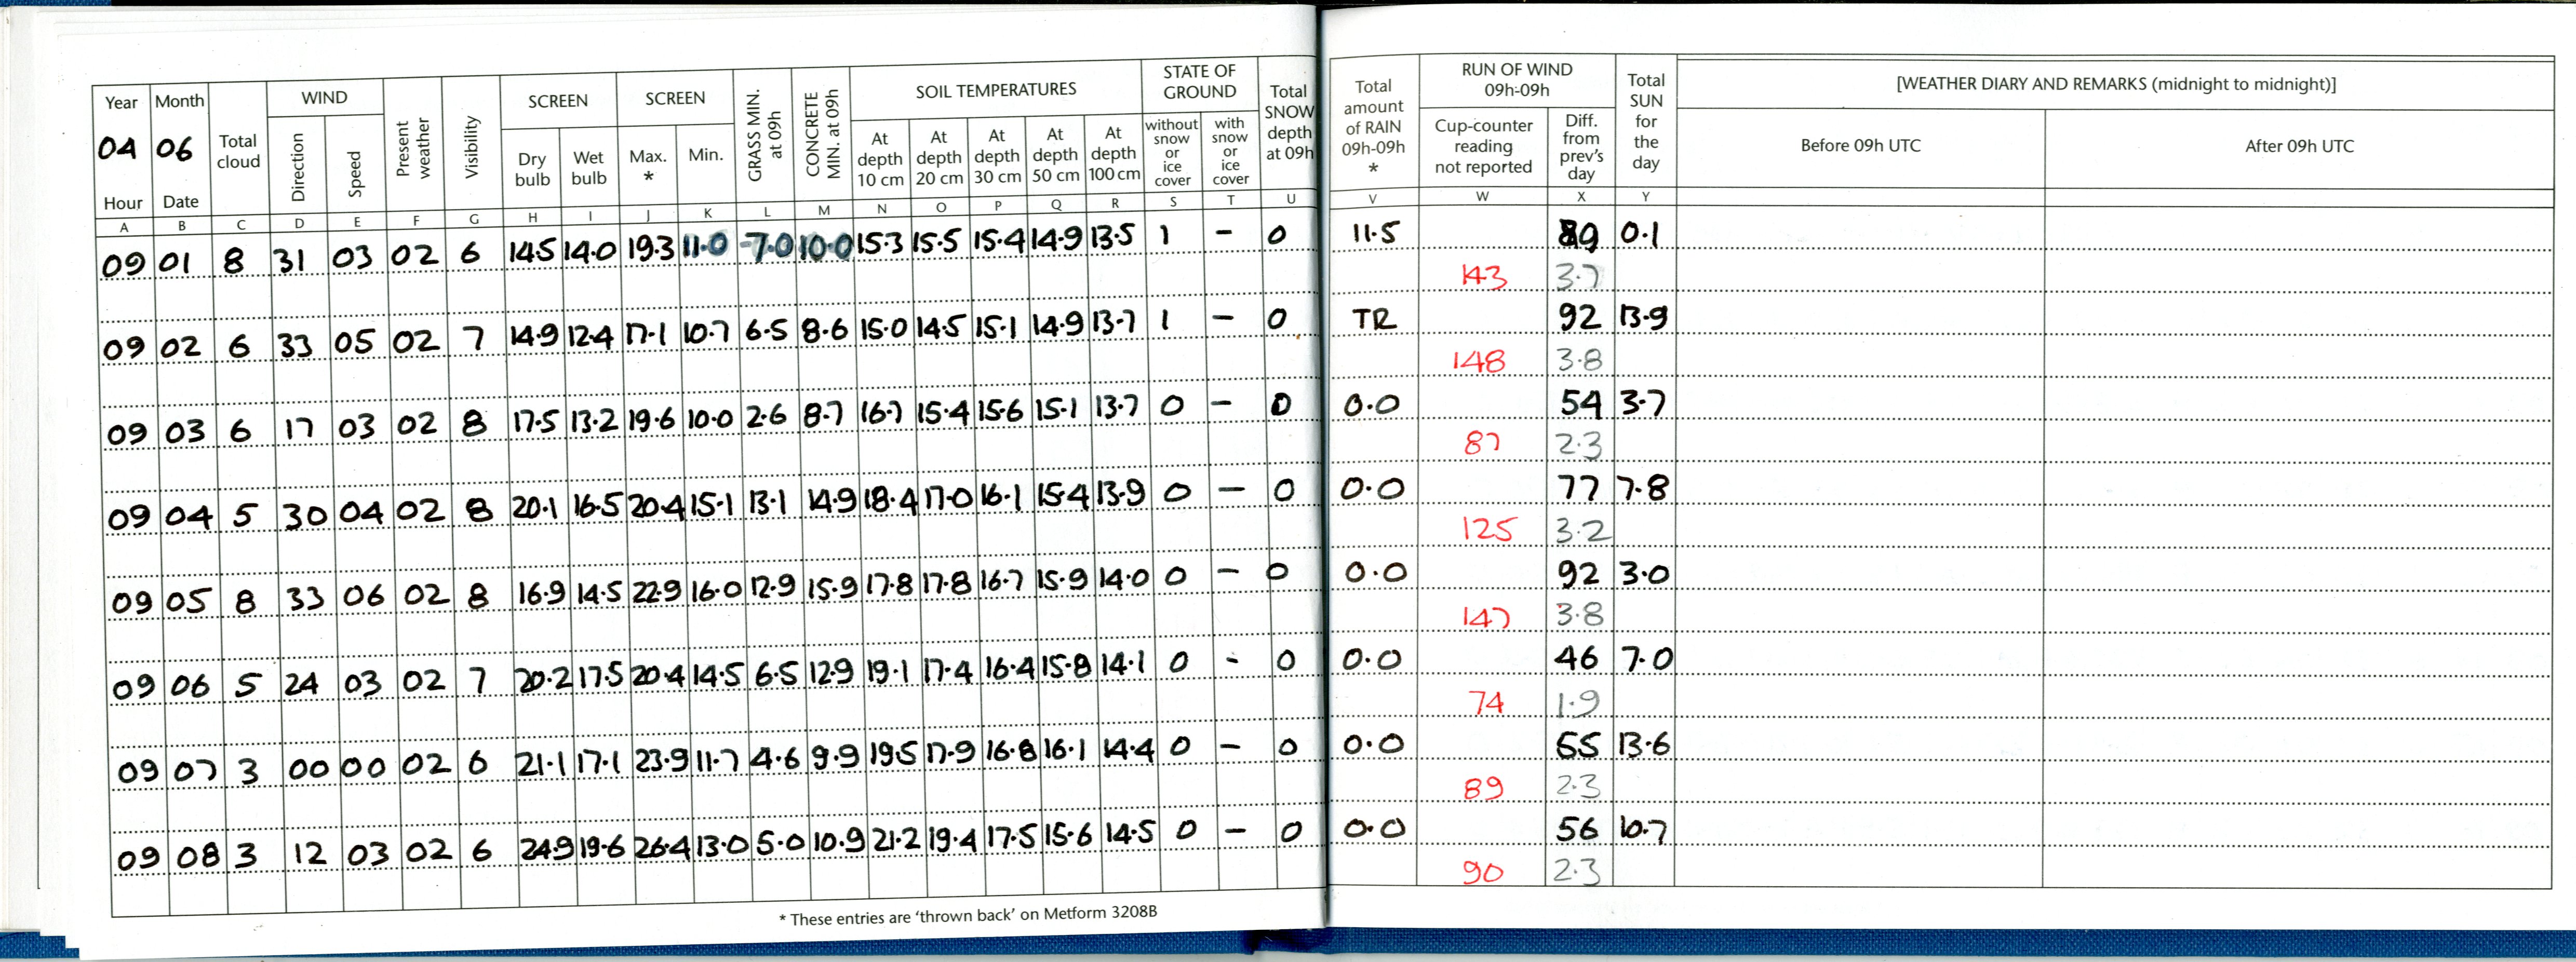 Year Month Total cloud WIND Present weather Visibility SCREEN SCREEN GRASS MIN. at 09h CONCRETE MIN. at 09h SOIL TEMPERATURES STATE OF GROUND Total SNOW depth at 09h Total amount of RAIN 09h-09h * RUN OF WIND 09h-09h Total SUN for the day [WEATHER DIARY AND REMARKS (midnight to midnight)]
04 06 Direction Speed Dry bulb Wet bulb Max. * Min. At depth 10 cm At depth 20 cm At depth 30 cm At depth 50 cm At depth 100 cm without snow or ice cover with snow or ice cover Cup-counter reading not reported Diff. from prev's day Before 09h UTC After 09h UTC
Hour Date
A B C D E F G H I J K L M N O P Q R S T U V W X Y
09 01 8 31 03 02 6 14.5 14.0 19.3 11.0 7.0 10.0 15.3 15.5 15.4 14.9 13.5 1 – 0 11.5 89 0.1
143 3.7
09 02 6 33 05 02 7 14.9 12.4 17.1 10.7 6.5 8.6 15.0 14.5 15.1 14.9 13.7 1 – 0 TR 92 13.9
148 3.8
09 03 6 17 03 02 8 17.5 13.2 19.6 10.0 2.6 8.7 16.7 15.4 15.6 15.1 13.7 0 – 0 0.0 54 3.7
87 2.3
09 04 5 30 04 02 8 20.1 16.5 20.4 15.1 13.1 14.9 18.4 17.0 16.1 15.4 13.9 0 – 0 0.0 77 7.8
125 3.2
09 05 8 33 06 02 8 16.9 14.5 22.9 16.0 12.9 15.9 17.8 17.8 16.7 15.9 14.0 0 – 0 0.0 92 3.0
147 3.8
09 06 5 24 03 02 7 20.2 17.5 20.4 14.5 6.5 12.9 19.1 17.4 16.4 15.8 14.1 0 - 0 0.0 46 7.0
74 1.9
09 07 3 00 00 02 6 21.1 17.1 23.9 11.7 4.6 9.9 19.5 17.9 16.8 16.1 14.4 0 – 0 0.0 55 13.6
89 2.3
09 08 3 12 03 02 6 24.9 19.6 26.4 13.0 5.0 10.9 21.2 19.4 17.5 15.6 14.5 0 – 0 0.0 56 10.7
90 2.3
* These entries are 'thrown back' on Metform 3208B